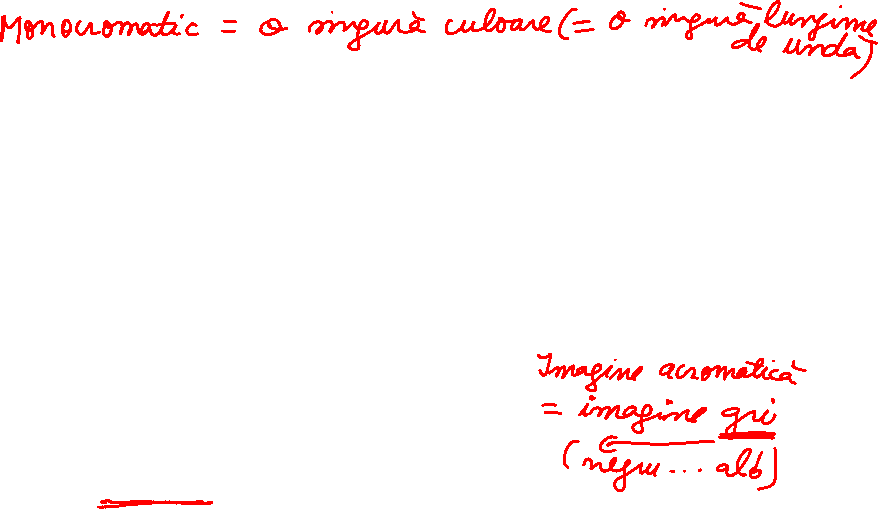 Monocromatic = o singură culoare (= o singură lungime
de undă)
Imagine acromatică
= imagine gri
(negru ... alb)